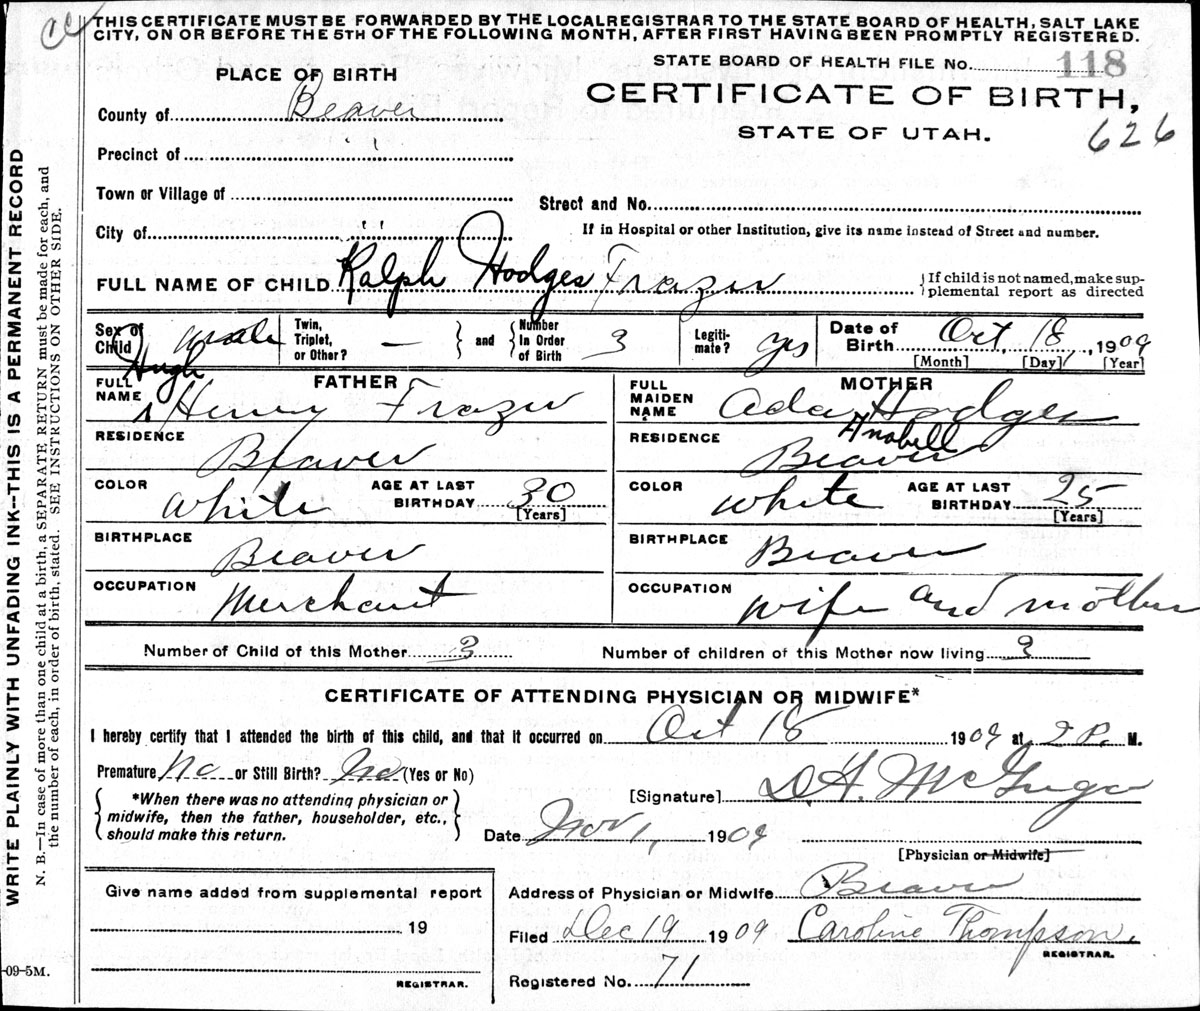 THIS CERTIFICATE MUST BE FORWARDED BY THE LOCAL REGISTRAR TO THE STATE BOARD OF HEALTH, SALT LAKE
CITY, ON OR BEFORE THE 5TH OF THE FOLLOWING MONTH, AFTER FIRST HAVING BEEN PROMPTLY REGISTERED.
STATE BOARD OF HEALTH FILE No. 118
PLACE OF BIRTH
CERTIFICATE OF BIRTH,
STATE OF UTAH.
626
County of Beaver
Precinct of "
Town or Village of
Street and No.
City of "
If in Hospital or other Institution, give its name instead of Street and number.
FULL NAME OF CHILD Ralph Hodges Frazer
{If child is not named, make sup-
plemental report as directed
Sex of Child male
Twin, Triplet, or Other? — } and { Number In Order of Birth 3
Legiti-mate? yes
Date of Birth Oct, 18, 1909
[Month] [Day] [Year]
FATHER
FULL NAME Hugh Henry Frazer
RESIDENCE Beaver
COLOR White
AGE AT LAST BIRTHDAY 30 [Years]
BIRTHPLACE Beaver
OCCUPATION Merchant
MOTHER
FULL MAIDEN NAME Ada Anabell Hodges
RESIDENCE Beaver
COLOR White
AGE AT LAST BIRTHDAY 25 [Years]
BIRTHPLACE Beaver
OCCUPATION wife and mother
Number of Child of this Mother 3
Number of children of this Mother now living 3
CERTIFICATE OF ATTENDING PHYSICIAN OR MIDWIFE*
I hereby certify that I attended the birth of this child, and that it occurred on Oct 18 1909 at 2 P. M.
Premature No or Still Birth? No (Yes or No)
*When there was no attending physician or
midwife, then the father, householder, etc.,
should make this return.
[Signature] D. H. McGregor
Date Nov 1, 1909
[Physician or Midwife]
Give name added from supplemental report
19
REGISTRAR.
Address of Physician or Midwife Beaver
Filed Dec 19 1909 Caroline Thompson.
REGISTRAR.
Registered No. 71
-09-5M.
WRITE PLAINLY WITH UNFADING INK--THIS IS A PERMANENT RECORD
N. B.—In case of more than one child at a birth, a SEPARATE RETURN must be made for each, and
the number of each, in order of birth, stated. SEE INSTRUCTIONS ON OTHER SIDE.